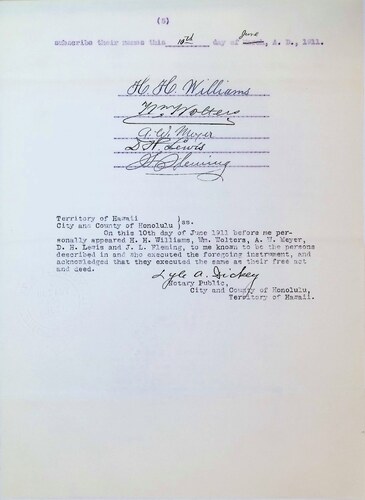 (5)
subscribe their names this 10th day of June, A. D., 1911.
H. H. Williams
Wm Wolters
A. W. Meyer
D. H. Lewis
J. L. Fleming
Territory of Hawaii )
City and County of Honolulu )ss.
On this 10th day of June 1911 before me per-
sonally appeared H. H. Williams, Wm. Wolters, A. W. Meyer,
D. H. Lewis and J. L. Fleming, to me known to be the persons
described in and who executed the foregoing instrument, and
acknowledged that they executed the same as their free act
and deed.
Lyle A. Dickey
Notary Public,
City and County of Honolulu,
Territory of Hawaii.